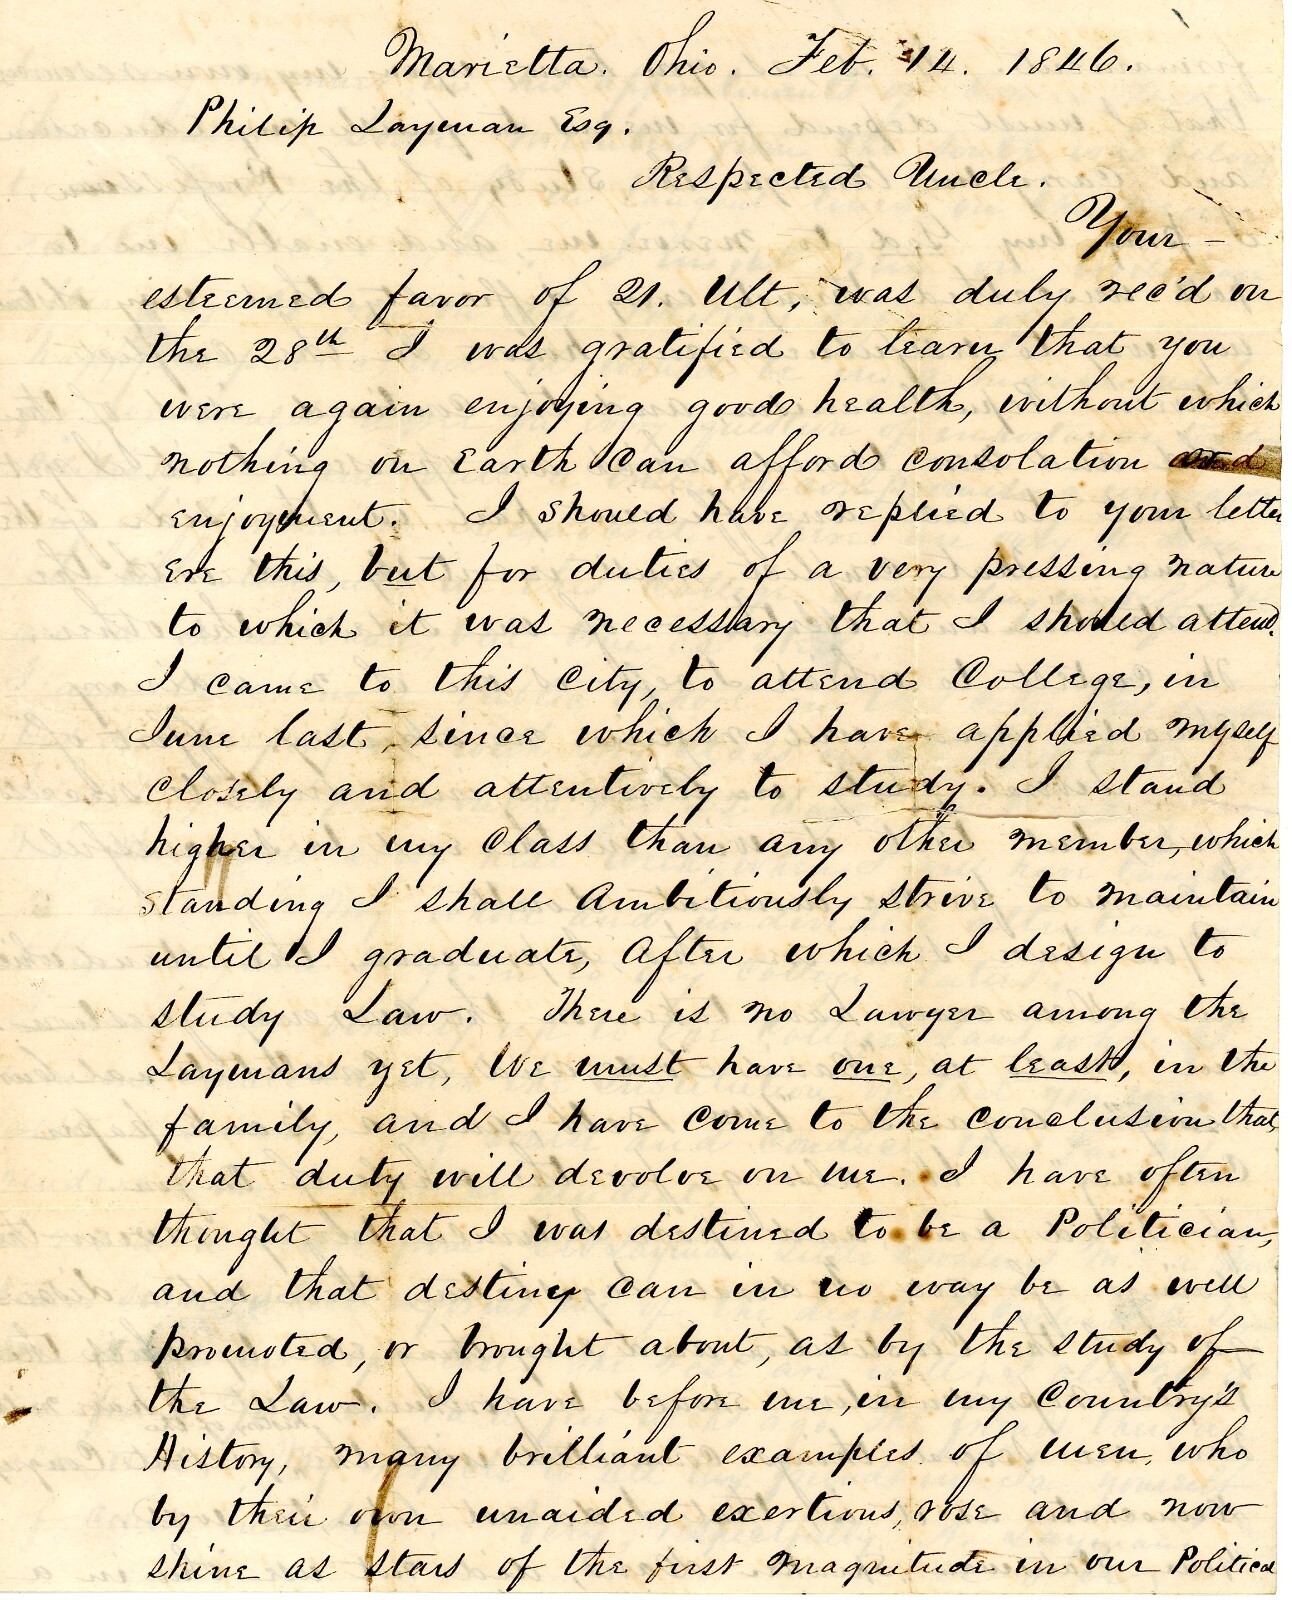 Marietta. Ohio. Feb. 14. 1846.
Philip Layman Esq.
Respected Uncle.
Your -
esteemed favor of 21. Ult, was duly rec'd on
the 28th I was gratified to learn that you
were again enjoying good health, without which
nothing on Earth can afford consolation and
enjoyment. I should have replied to your letter
ere this, but for duties of a very pressing nature
to which it was necessary that I should attend.
I came to this City, to attend College, in
June last, since which I have applied myself
closely and attentively to study. I stand
higher in my Class than any other member, which
standing I shall Ambitiously strive to maintain
until I graduate, After which I design to
study Law. There is no Lawyer among the
Laymans yet, We must have one, at least, in the
family, and I have come to the conclusion that,
that duty will devolve on me. I have often
thought that I was destined to be a Politician,
and that destiny can in no way be as well
promoted, or brought about, as by the study of
the Law. I have before me, in my Country's
History, many brilliant examples of men, who
by their own unaided exertions, rose and now
shine as stars of the first magnitude in our Political